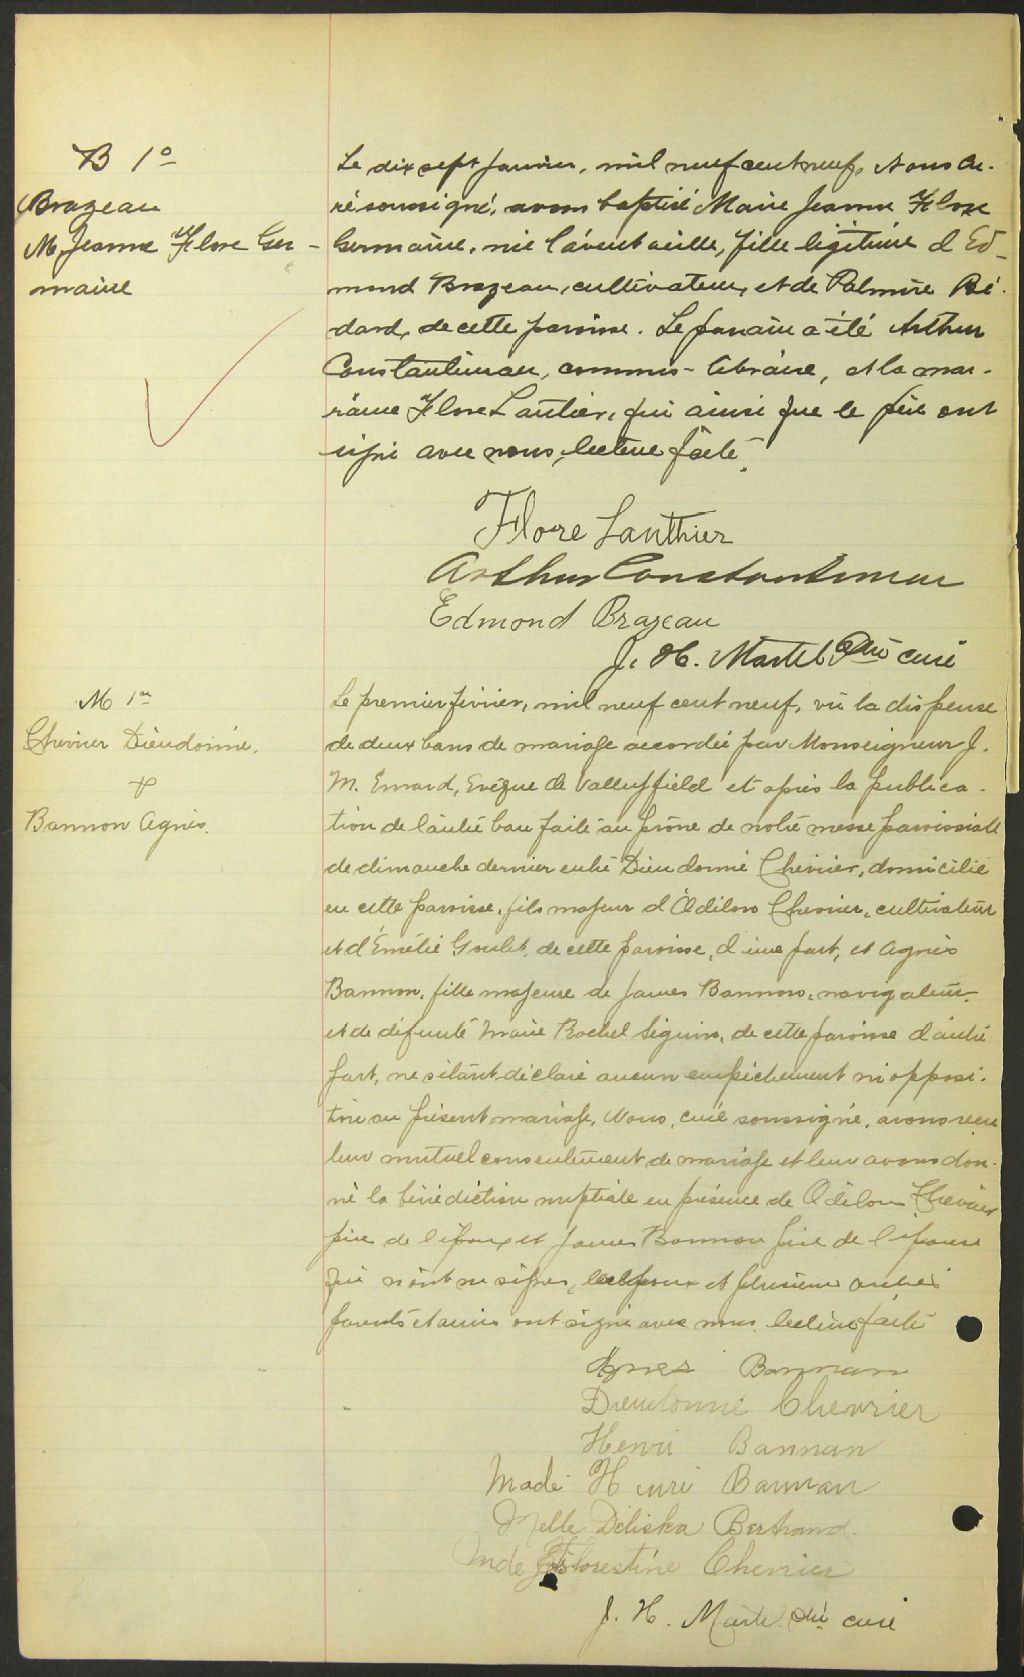 B 1°
Brazeau
M. Jeanne Flore Ger-
maine
Le dix sept janvier, mil neuf cent neuf, Nous cu-
ré soussigné, avons baptisé Marie Jeanne Flore
Germaine, née l'avant veille, fille légitime d'Ed-
mond Brazeau, cultivateur, et de Palmire Bé-
dard, de cette paroisse. Le parrain a été Arthur
Constantineau, commis-libraire, et la mar-
raine Flore Lantier, qui ainsi que le père ont
signé avec nous, lecture faite.
Flore Lanthier
Arthur Constantineau
Edmond Brazeau
J. H. Martel Ptre curé
M 1er
Chevrier Dieudonné.
&
Bannon Agnès.
Le premier février, mil neuf cent neuf, vû la dispense
de deux bans de mariage accordée par Monseigneur J.
M. Emard, Evêque de Valleyfield et après la publica-
tion de l'autre ban faite au prône de notre messe paroissiale
de dimanche dernier entre Dieudonné Chevrier, domicilié
en cette paroisse, fils majeur d'Odilon Chevrier, cultivateur
et d'Émélie Goulet, de cette paroisse, d'une part, et Agnès
Bannon, fille majeure de James Bannon, navigateur
et de défunte Marie Rachel Séguin, de cette paroisse d'autre
part, ne s'étant déclaré aucun empêchement ni opposi-
tion au présent mariage, Nous, curé soussigné, avons reçu
leur mutuel consentement de mariage et leur avons don-
né la bénédiction nuptiale en présence de Odilon Chevrier
père de l'époux et James Bannon père de l'épouse
qui n'ont su signer, les époux et plusieurs autres
parents et amis ont signé avec nous lecture faite
Agnes Bannan
Dieudonné Chevrier
Henri Bannan
Made Henri Bannan
Melle Déliska Bertrand.
Mde Florestine Chevrier
J. H. Martel Ptre curé